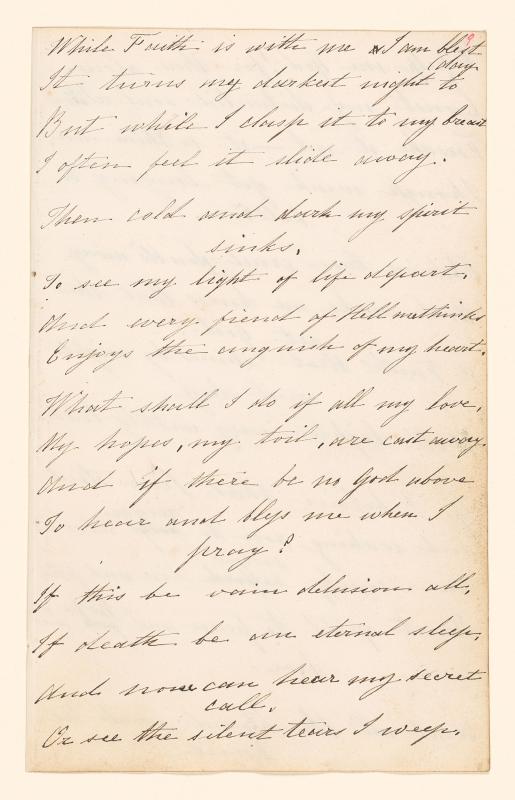 While Faith is with me I am blest
It turns my darkest night to day
But while I clasp it to my breast
I often feel it slide away.
Then cold and dark my spirit
sinks,
To see my light of life depart,
And every fiend of Hell methinks
Enjoys the anguish of my heart.
What shall I do if all my love,
My hopes, my toil, are cast away.
And if there be no God above
To hear and blefs me when I
pray?
If this be vain delusion all,
If death be an eternal sleep,
And none can hear my secret
call,
Or see the silent tears I weep.